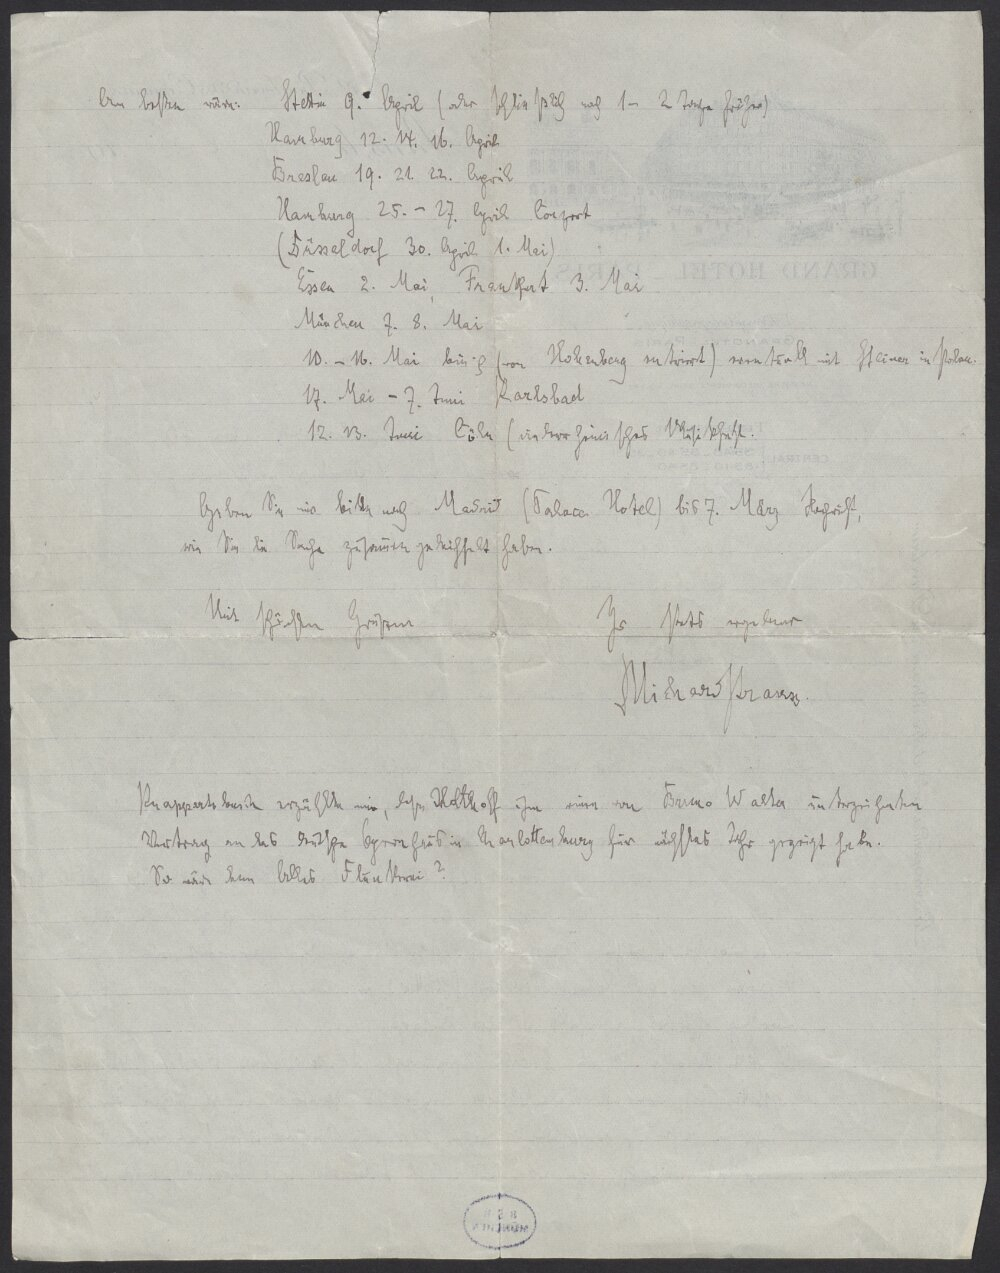 Am besten wäre: Stettin 9. April (oder schließlich noch 1–2 Tage früher)
Hamburg 12. 14. 16. April
Breslau 19. 21. 22. April
Hamburg 25. – 27. April Concert
(Düsseldorf 30. April 1. Mai)
Essen 2. Mai, Frankfurt 3. Mai
München 7. 8. Mai
10. – 16. Mai (von Hohenberg) eventuell mit Steiner in Polen.
17. Mai – 7. Juni Karlsbad
12. 13. Juni Cöln (niederrheinisches Musikfest.
Geben Sie mir bitte nach Madrid (Palace Hotel) bis 7. März Nachricht,
wie Sie die Sache zusammen gedeichselt haben.
Mit schönsten Grüßen Ihr stets ergebener
Richard Strauss.
Knappertsbusch erzählte mir, daß Holthoff ihm einen von Bruno Walter unterzeichneten
Vertrag an das deutsche Opernhaus in Charlottenburg für nächstes Jahr gezeigt habe.
So wäre denn Alles Flunkerei?
GRAND HOTEL PARIS
CENTRAL
BSB
MÜNCHEN